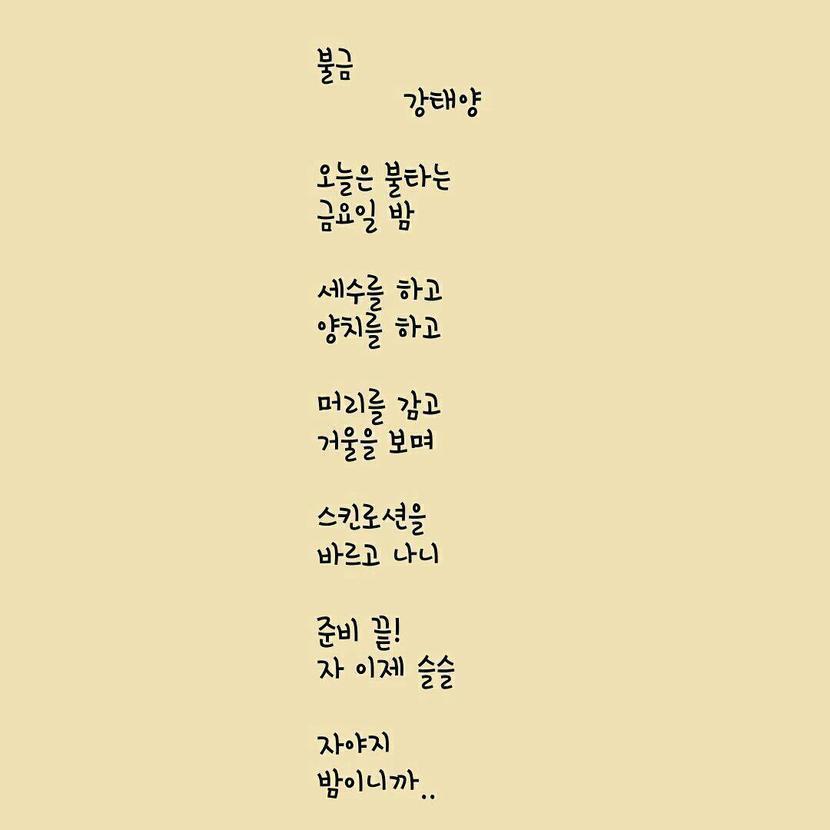 불금
강태양
오늘은 불타는
금요일 밤
세수를 하고
양치를 하고
머리를 감고
거울을 보며
스킨로션을
바르고 나니
준비 끝!
자 이제 슬슬
자야지
밤이니까..